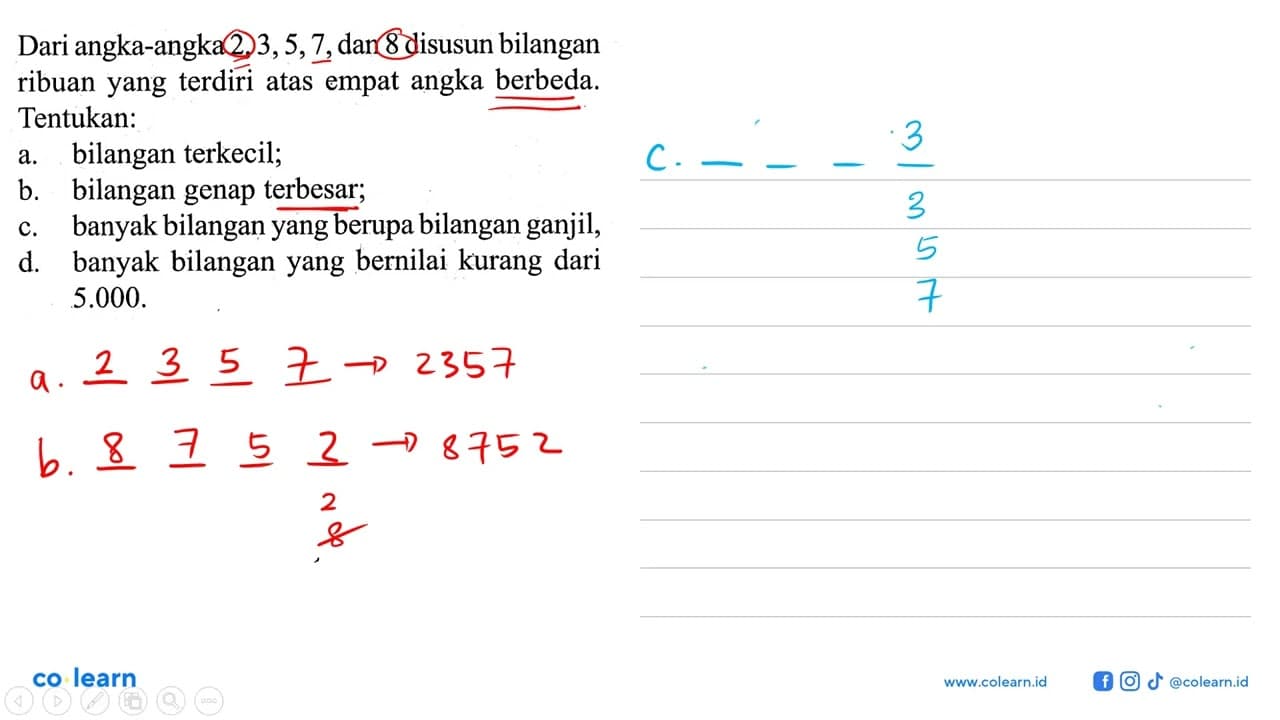 Dari angka-angka 2, 3, 5, 7, dan 8 disusun bilangan
ribuan yang terdiri atas empat angka berbeda.
Tentukan:
a. bilangan terkecil;
b. bilangan genap terbesar;
c. banyak bilangan yang berupa bilangan ganjil,
d. banyak bilangan yang bernilai kurang dari
5.000.
a. 2 3 5 7 → 2357
b. 8 7 5 2 → 8752
2
8
c. _ _ _ 3
3
5
7
co learn
www.colearn.id
@colearn.id